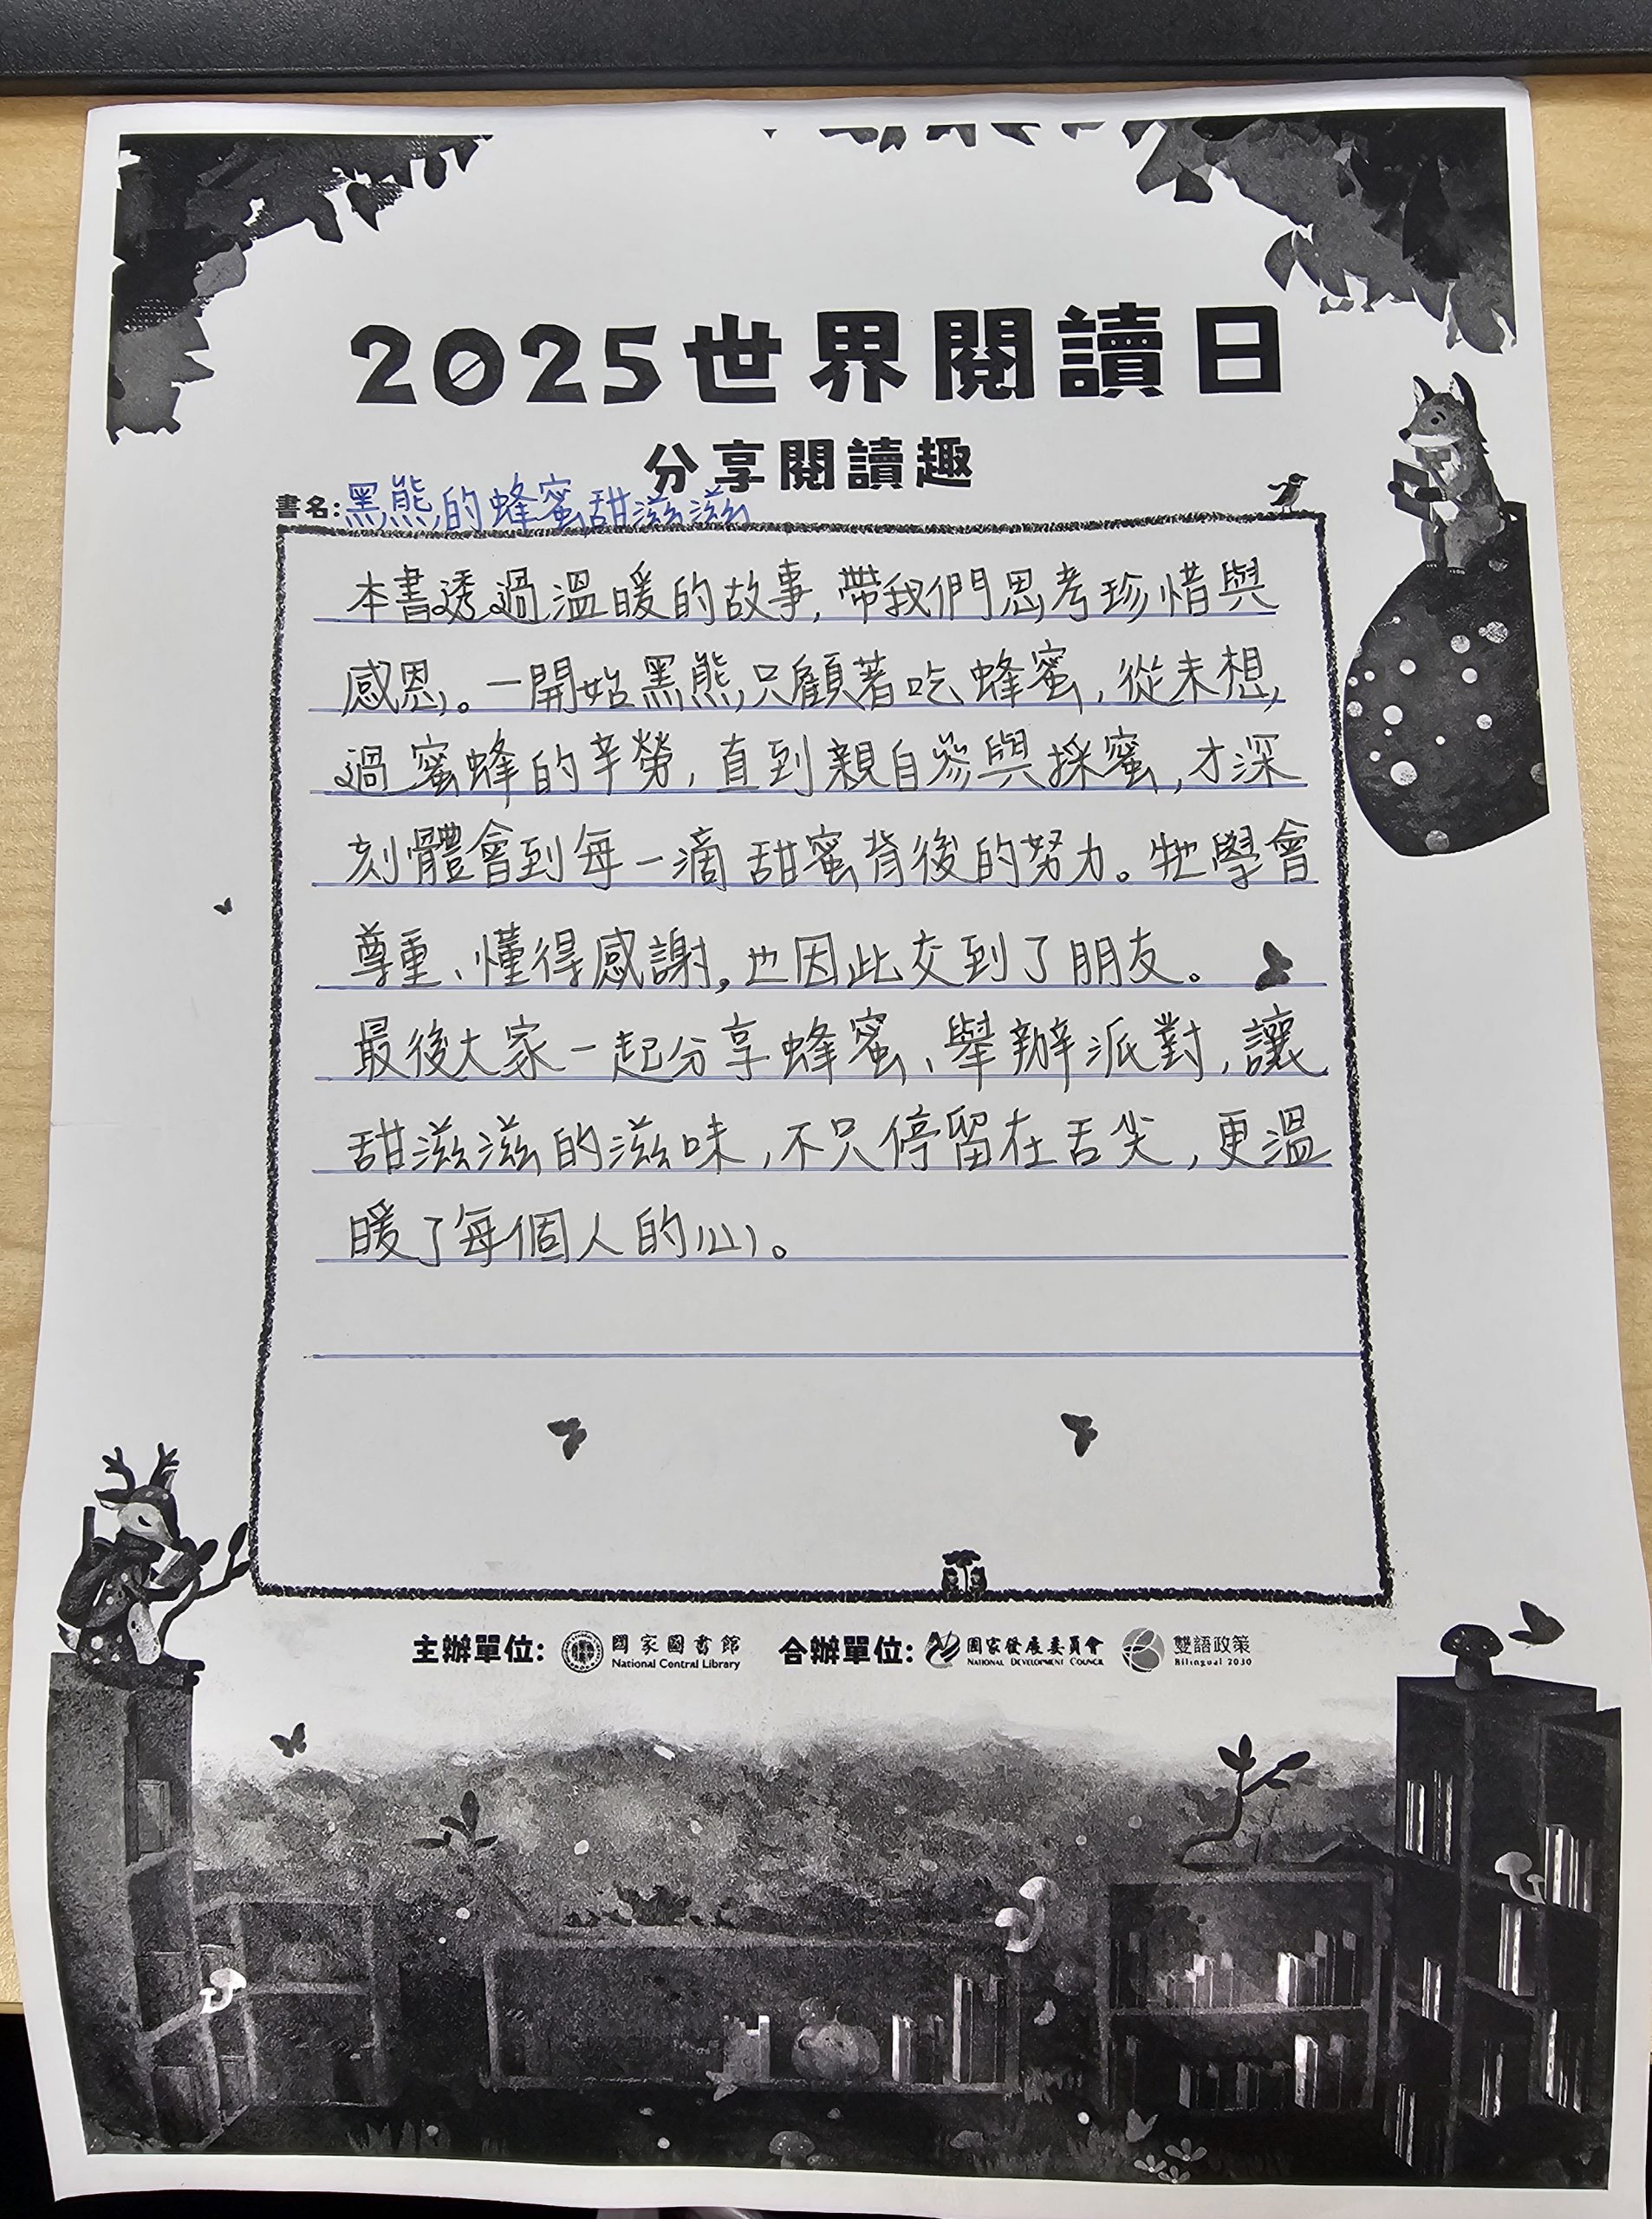 2025世界閱讀日
分享閱讀趣
書名:黑熊的蜂蜜甜滋滋
本書透過溫暖的故事,帶我們思考珍惜與
感恩。一開始黑熊只顧著吃蜂蜜,從未想
過蜜蜂的辛勞,直到親自參與採蜜,才深
刻體會到每一滴甜蜜背後的努力。牠學會
尊重、懂得感謝,也因此交到了朋友。
最後大家一起分享蜂蜜、舉辦派對,讓
甜滋滋的滋味,不只停留在舌尖,更溫
暖了每個人的心。
主辦單位: 國家圖書館 National Central Library 合辦單位: 國家發展委員會 NATIONAL DEVELOPMENT COUNCIL 雙語政策 Bilingual 2030